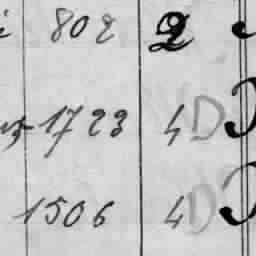 802 2
1723 4 D
1506 4 D